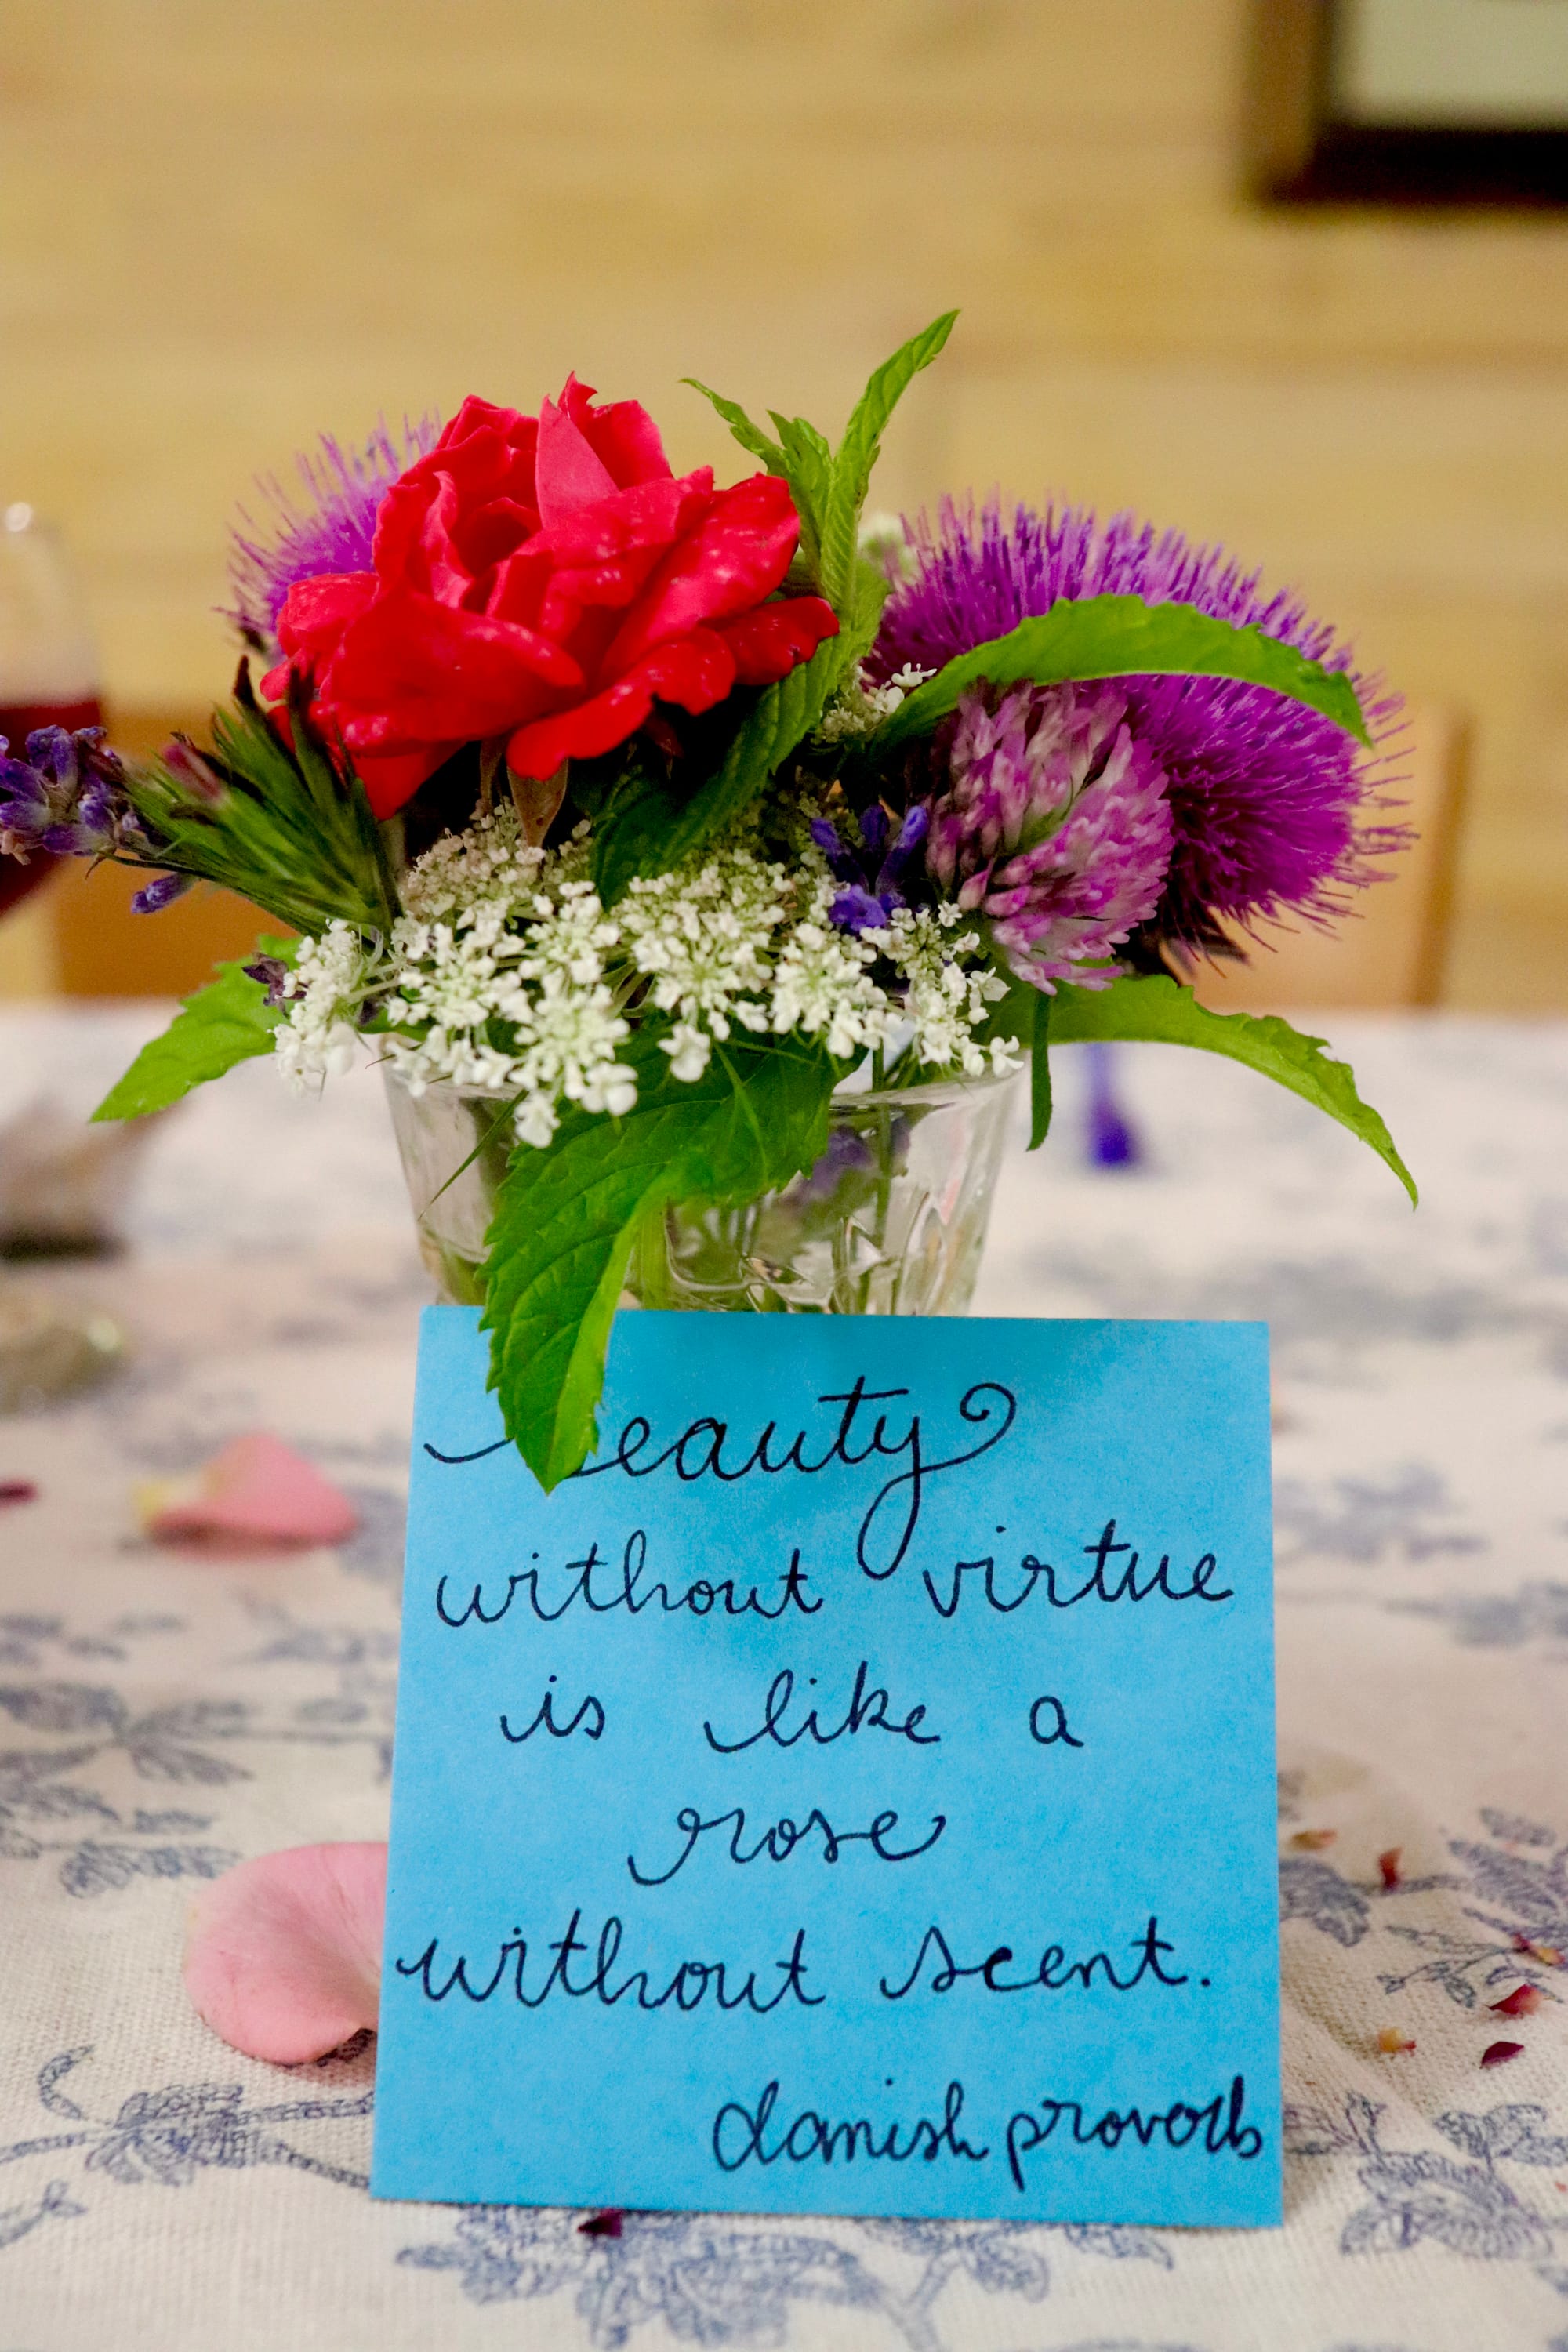 Beauty
without virtue
is like a
rose
without scent.
danish proverb